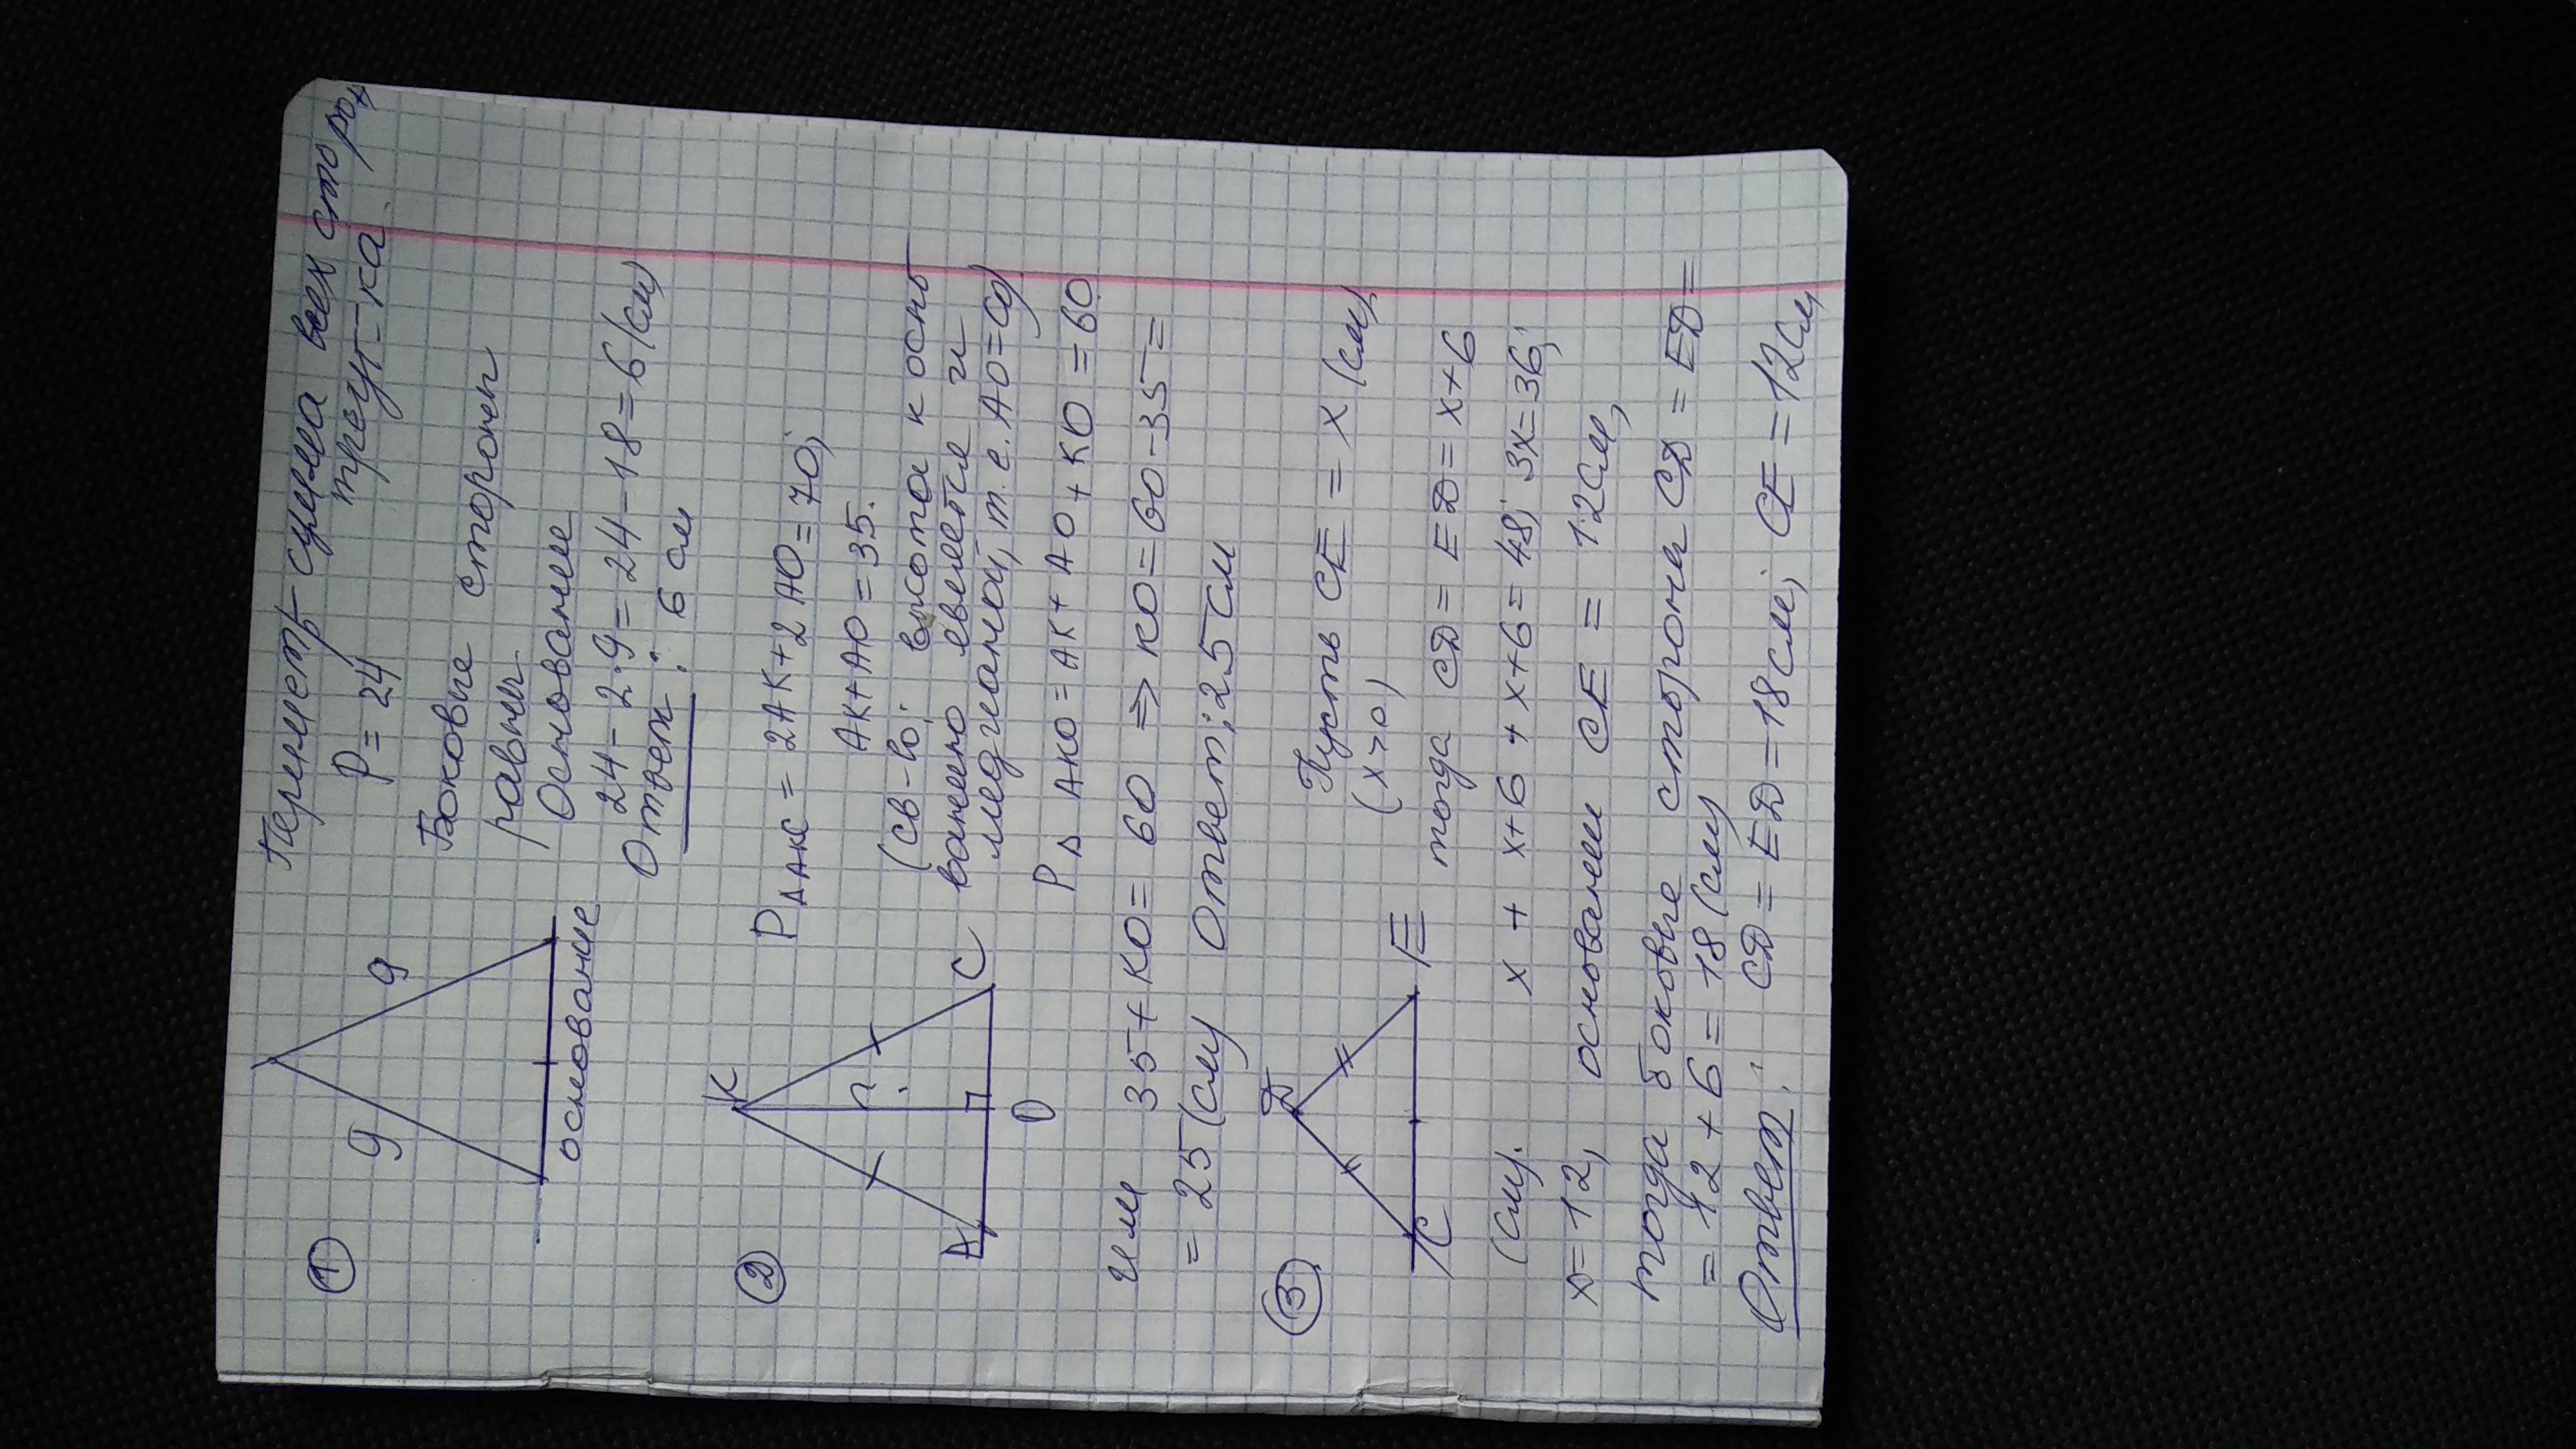 ①
Периметр-сумма всех сторон
треуг-ка.
P = 24
9
9
Боковые стороны
равны.
Основание
основание
24-2·9=24-18=6(см)
Ответ: 6 см
②
К
А
С
О
h
P△АКС = 2АК+2АО=70;
АК+АО=35.
(св-во: высота к осно
ванию является и
медианой, т.е. АО=СО)
P△АКО=АК+АО+КО=60
или 35+КО=60 => КО=60-35=
=25(см) Ответ: 25 см
③
D
C
E
Пусть CE = x (см)
(x>0)
тогда CD=ED=x+6
(см). x + x+6+x+6=48; 3x=36;
x=12, основании CE = 12см,
тогда боковые стороны CD=ED=
=12+6=18(см)
Ответ: CD=ED=18см; CE=12см